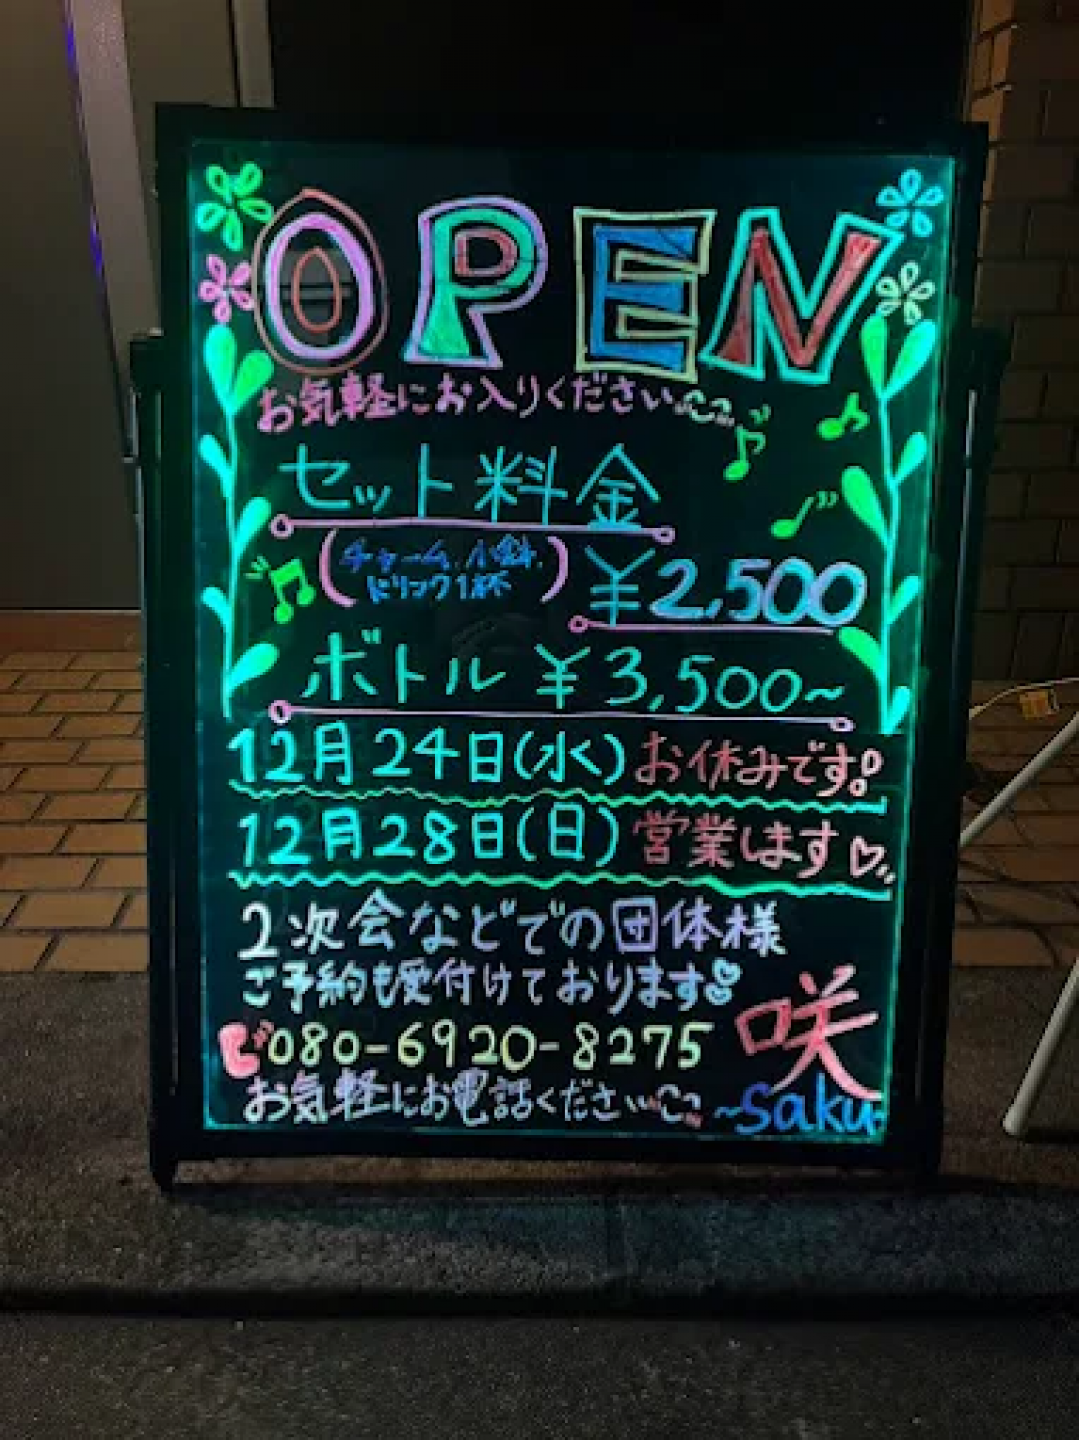 OPEN
お気軽にお入りください
セット料金
(チャーム、小鉢、
ドリンク1杯)
¥2,500
ボトル ¥3,500~
12月24日(水)お休みです!
12月28日(日)営業します♡
2次会などでの団体様
ご予約も受付けております
080-6920-8275
お気軽にお電話ください
咲
~Saku~